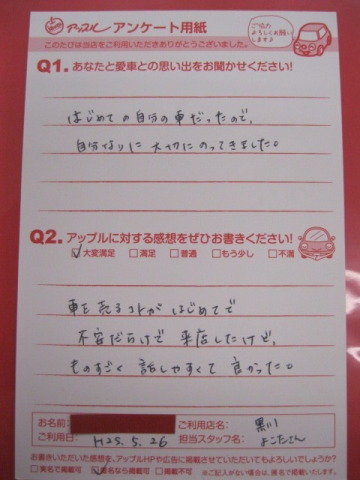 アップル アンケート用紙
ご協力
よろしくお願い
します♪
このたびは当店をご利用いただきありがとうございました。
Q1. あなたと愛車との思い出をお聞かせください!
はじめての自分の車だったので、
自分なりに大切にのってきました。
Q2. アップルに対する感想をぜひお書きください!
☑大変満足 □満足 □普通 □もう少し □不満
車を売るコトがはじめてで
不安だらけで来店したけど、
ものすごく話しやすくて良かった。
お名前:
ご利用店名: 黒川
ご利用日: H25.5.26 担当スタッフ名: よこたさん
お書きいただいた感想を、アップルHPや広告に掲載させていただいてもよろしいでしょうか?
□実名で掲載可 ☑匿名なら掲載可 □掲載不可 ※ご記入がない場合は、匿名で掲載いたします。